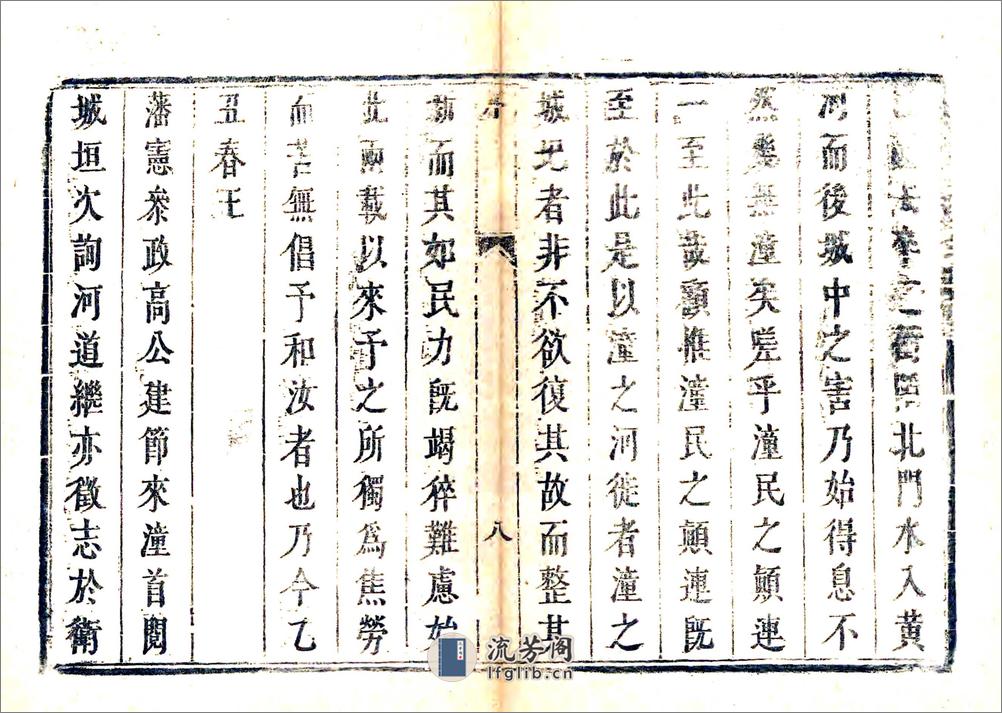 之衝罷北門水入黃
河而後城中之害乃始得息不
然幾無潼矣嗟乎潼民之顛連
一至此哉顧惟潼民之顛連既
至於此是以潼之河徙者潼之
城圮者非不欲復其故而整其
新而其如民力既竭猝難慮始
序
八
此兩載以來予之所獨為焦勞
而苦無倡予和汝者也乃今乙
丑春王
藩憲參政高公建節來潼首閱
城垣次詢河道繼亦徵志於衛
流芳阁
lfglib.cn